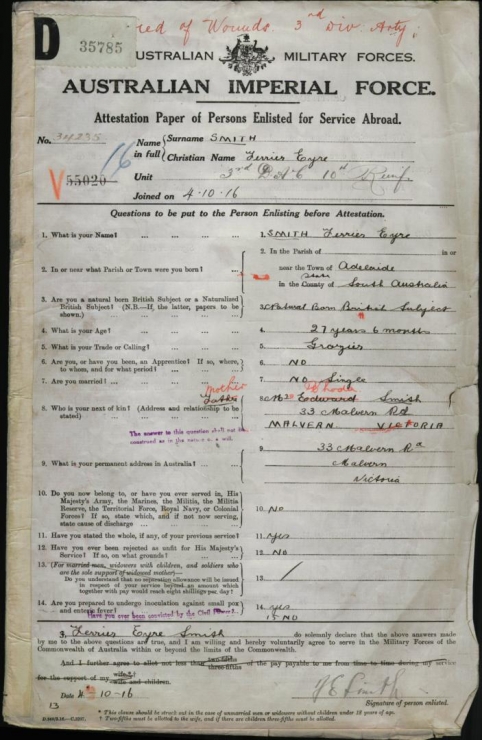 D 35785
Died of Wounds. 3rd Div Arty.
AUSTRALIAN MILITARY FORCES.
AUSTRALIAN IMPERIAL FORCE.
Attestation Paper of Persons Enlisted for Service Abroad.
No. 34235
Name in full { Surname SMITH
Christian Name Ferries Eyre
V 55020 16
Unit 3rd DAC 10th Reinf.
Joined on 4-10-16
Questions to be put to the Person Enlisting before Attestation.
1. What is your Name? ... ... ... 1. SMITH Ferries Eyre
2. In or near what Parish or Town were you born? ... 2. In the Parish of in or
near the Town of Adelaide
State
in the County of South Australia
3. Are you a natural born British Subject or a Naturalized British Subject? (N.B.—If, the latter, papers to be shown.) ... 3. Natural Born British Subject
4. What is your Age? ... ... ... 4. 27 years 6 months
5. What is your Trade or Calling? ... ... 5. Grazier
6. Are you, or have you been, an Apprentice? If so, where, to whom, and for what period? ... 6. NO
7. Are you married? ... ... ... 7. NO Single
mother
Father
8. Who is your next of kin? (Address and relationship to be stated) ... 8. Mrs Edward Smith
33 Malvern Rd
MALVERN VICTORIA
The answer to this question shall not be
construed as in the nature of a will.
9. What is your permanent address in Australia? ... 9. 33 Malvern Rd
Malvern
Victoria
10. Do you now belong to, or have you ever served in, His Majesty's Army, the Marines, the Militia, the Militia Reserve, the Territorial Force, Royal Navy, or Colonial Forces? If so, state which, and if not now serving, state cause of discharge ... 10. NO
11. Have you stated the whole, if any, of your previous service? 11. yes
12. Have you ever been rejected as unfit for His Majesty's Service? If so, on what grounds? ... 12. NO
13. (For married men, widowers with children, and soldiers who are the sole support of widowed mother)—
Do you understand that no separation allowance will be issued in respect of your service beyond an amount which together with pay would reach eight shillings per day? 13. /
14. Are you prepared to undergo inoculation against small pox and enteric fever? 14. yes
Have you ever been convicted by the Civil Power? 15 NO
I, Ferries Eyre Smith do solemnly declare that the above answers made
by me to the above questions are true, and I am willing and hereby voluntarily agree to serve in the Military Forces of the
Commonwealth of Australia within or beyond the limits of the Commonwealth.
And I further agree to allot not less than two-fifths three-fifths of the pay payable to me from time to time during my service
for the support of my wife wife and children.
Date 4-10-16
F E Smith
Signature of person enlisted.
13
* This clause should be struck out in the case of unmarried men or widowers without children under 18 years of age.
† Two-fifths must be allotted to the wife, and if there are children three-fifths must be allotted.